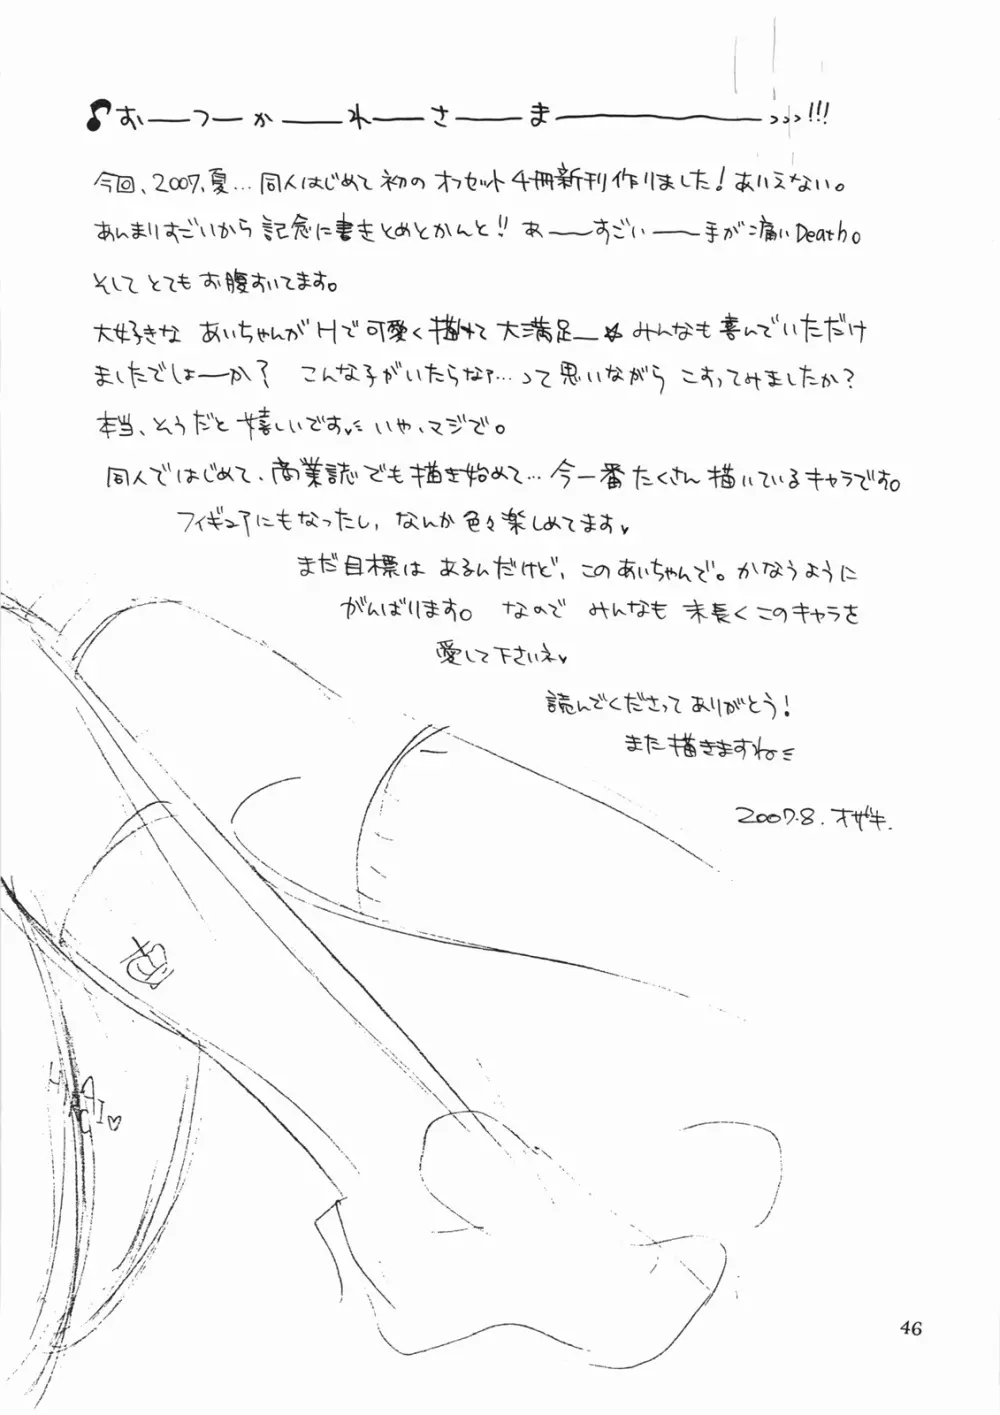 ♪おーつーかーれーさーまー>>>!!!
今回、2007、夏…同人はじめて初のオフセット4冊新刊作りました！ありえない。
あんまりすごいから記念に書きとめとかんと!! あーーすごいーー手が痛いDeath。
そしてとてもお腹すいてます。
大好きな あいちゃんがHで可愛く描けて大満足ー☆みんなも喜んでいただけ
ましたでしょーか？ こんな子がいたらなァ…って思いながら こすってみましたか？
本当、そうだと嬉しいです いや、マジで。
同人ではじめて、商業誌でも描き始めて…今一番たくさん描いているキャラです。
フィギュアにもなったし、なんか色々楽しめてます♥
まだ目標は あるんだけど、このあいちゃんで。かなうように
がんばります。 なので みんなも 末長くこのキャラを
愛して下さいネ♥
読んでくださってありがとう！
また描きますね
2007.8. オザキ.
AI♡
46